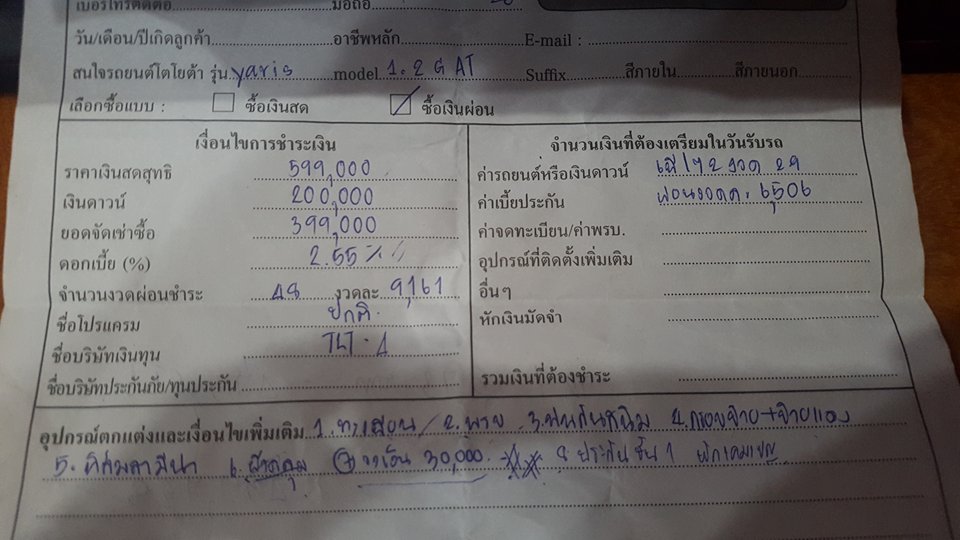 เบอร์โทรติดต่อ มือถือ
วัน/เดือน/ปีเกิดลูกค้า อาชีพหลัก E-mail :
สนใจรถยนต์โตโยต้า รุ่น yaris model 1.2 G AT Suffix สีภายใน สีภายนอก
เลือกซื้อแบบ : ซื้อเงินสด ซื้อเงินผ่อน
เงื่อนไขการชำระเงิน
ราคาเงินสดสุทธิ 599,000
เงินดาวน์ 200,000
ยอดจัดเช่าซื้อ 399,000
ดอกเบี้ย (%) 2.55 %
จำนวนงวดผ่อนชำระ 48 งวดละ 9,161
ชื่อโปรแกรม ปกติ
ชื่อบริษัทเงินทุน TLT
ชื่อบริษัทประกันภัย/ทุนประกัน
จำนวนเงินที่ต้องเตรียมในวันรับรถ
ค่ารถยนต์หรือเงินดาวน์ 72 งวด 29
ค่าเบี้ยประกัน ผ่อนงวดละ 6,506
ค่าจดทะเบียน/ค่าพรบ.
อุปกรณ์ที่ติดตั้งเพิ่มเติม
อื่นๆ
หักเงินมัดจำ
รวมเงินที่ต้องชำระ
อุปกรณ์ตกแต่งและเงื่อนไขเพิ่มเติม 1. ทะเบียน / 2. พรบ 3. พ่นกันสนิม 4. กรอบป้าย + ป้ายแดง
5. ฟิล์มลามิน่า 6. ผ้าคลุม 30,000 ประกันชั้น 1